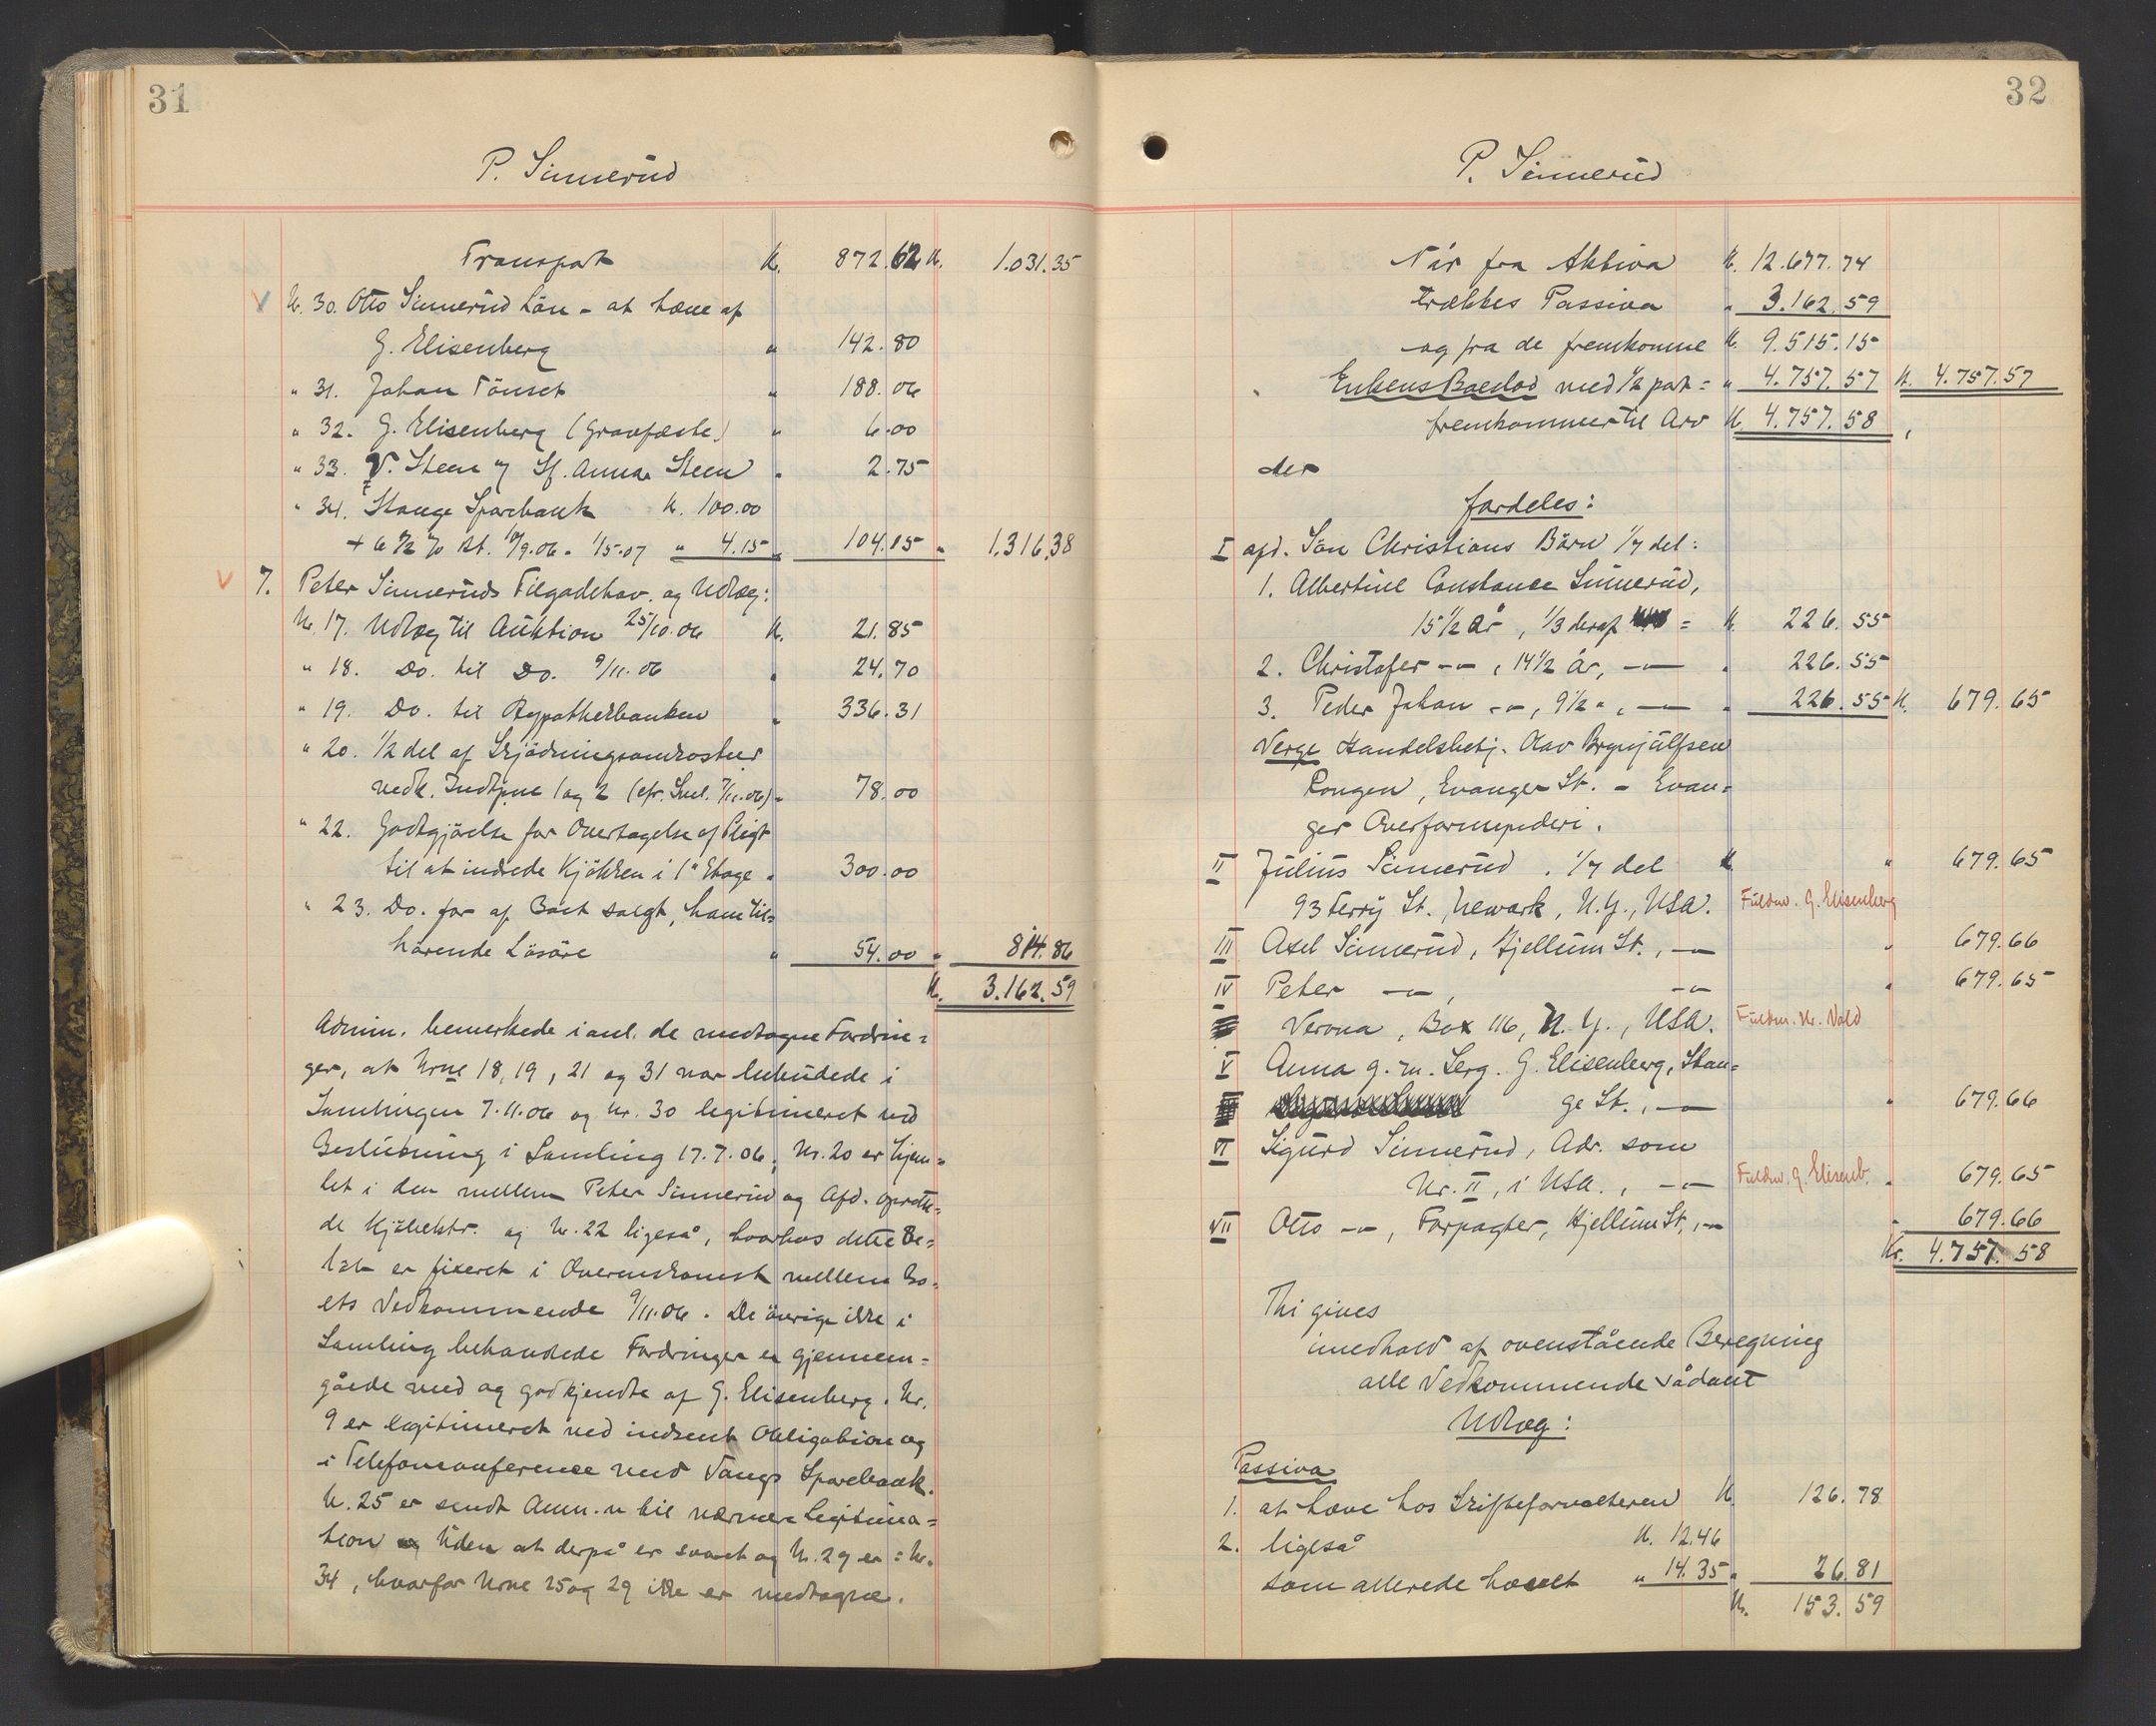 31
P. Sinnerud
Transport K. 872.62 K. 1.031.35
V N. 30. Otto Sinnerud Lön - at hæve af
G. Elisenberg " 142.80
" 31. Johan Tönset " 188.06
" 32. G. Elisenberg (Gravfæste) " 6.00
" 33. V. Steen Anna Steen " 2.75
" 34. Stange Sparebank K. 100.00
+ 6 1/2 % Rt. 10/9.06 - 1/5.07 " 4.15 " 104.15 " 1.316.38
V 7. Peter Sinneruds Tilgodehav. og Udlæg:
N. 17. Udlæg til Auktion 25/10.06 K. 21.85
" 18. Do. til Do. 9/11.06 " 24.70
" 19. Do. til Hypothekbanken " 336.31
" 20. 1/2 del af Skjödningsomkostner
vedk. 1 og 2 (cfr. 7/11.06) " 78.00
" 22. Godtgjörelse for Overtagelse af Pligt
til at indrede Kjökken i 1' Etage " 300.00
" 23. Do. for af Boet solgt, ham til=
hörende Lösöre " 54.00 " 814.86
K. 3.162.59
Admin. bemerkede i anl. de medtagne Fordrin=
ger, at Nrne 18, 19, 21 og 31 var behandlede i
Samlingen 7.11.06 og Nr. 30 legitimeret ved
Beslutning i Samling 17.7.06, Nr. 20 er hjem=
let i den mellem Peter Sinnerud og Afd. oprette=
de Kjöbektr. og N. 22 ligeså, hvorhos dette Be=
löb er fixeret i Overenskomst mellem Bo=
ets Vedkommende 9/11.06. De övrige ikke i
Samling behandlede Fordringer er gjennem=
gåede med og godkjendte af G. Elisenberg. Nr.
9 er legitimeret ved indsendt Obligation og
i Telefonconference med Vangs Sparebank.
N. 25 er sendt Anm. til nærmere legitima=
tion uden at derpå er svaret og N. 29 er = N.
34, hvorfor Nrne 25 og 29 ikke er medtagne.
32
P. Sinnerud
Når fra Aktiva K. 12.677.74
trækkes Passiva " 3.162.59
og fra de fremkomne K. 9.515.15
Enkens Boeslod med 1/2 part = " 4.757.57 K. 4.757.57
fremkommer til Arv K. 4.757.58,
der
fordeles:
I afd. Sön Christians Börn 1/7 del:
1. Albertine Constance Sinnerud,
15 1/2 år, 1/3 deraf = K. 226.55
2. Christofer -"-, 14 1/2 år, -"- " 226.55
3. Peder Johan -"-, 9 1/2 ", -"- " 226.55 K. 679.65
Verge Handelsbetj. Olav Brynjulfsen
Rongen, Evanger St. - Evan=
ger Overformynderi.
II Julius Sinnerud. 1/7 del " 679.65
93 Ferry St., Newark, N.Y., USA. Fuldm. G. Elisenberg
III Axel Sinnerud, Hjellum St., -"- " 679.66
IV Peter -"-, -"- " 679.65
Verona, Box 116, N.Y., USA. Fuldm. N. Vold
V Anna g. m. Serg. G. Elisenberg, Stan=
ge St., -"- " 679.66
VI Sigurd Sinnerud, Adr. som
Nr. II, i USA., -"- Fuldm. G. Elisenb. " 679.65
VII Otto -"-, Forpagter, Hjellum St., -"- " 679.66
Kr. 4.757.58
Thi gives
i medhold af ovenstående Beregning
alle Vedkommende sådant
Udlæg:
Passiva
1. at hæve hos Skifteforvalteren K. 126.78
2. ligeså K. 12.46
som allerede hævet " 14.35 " 26.81
K. 153.59